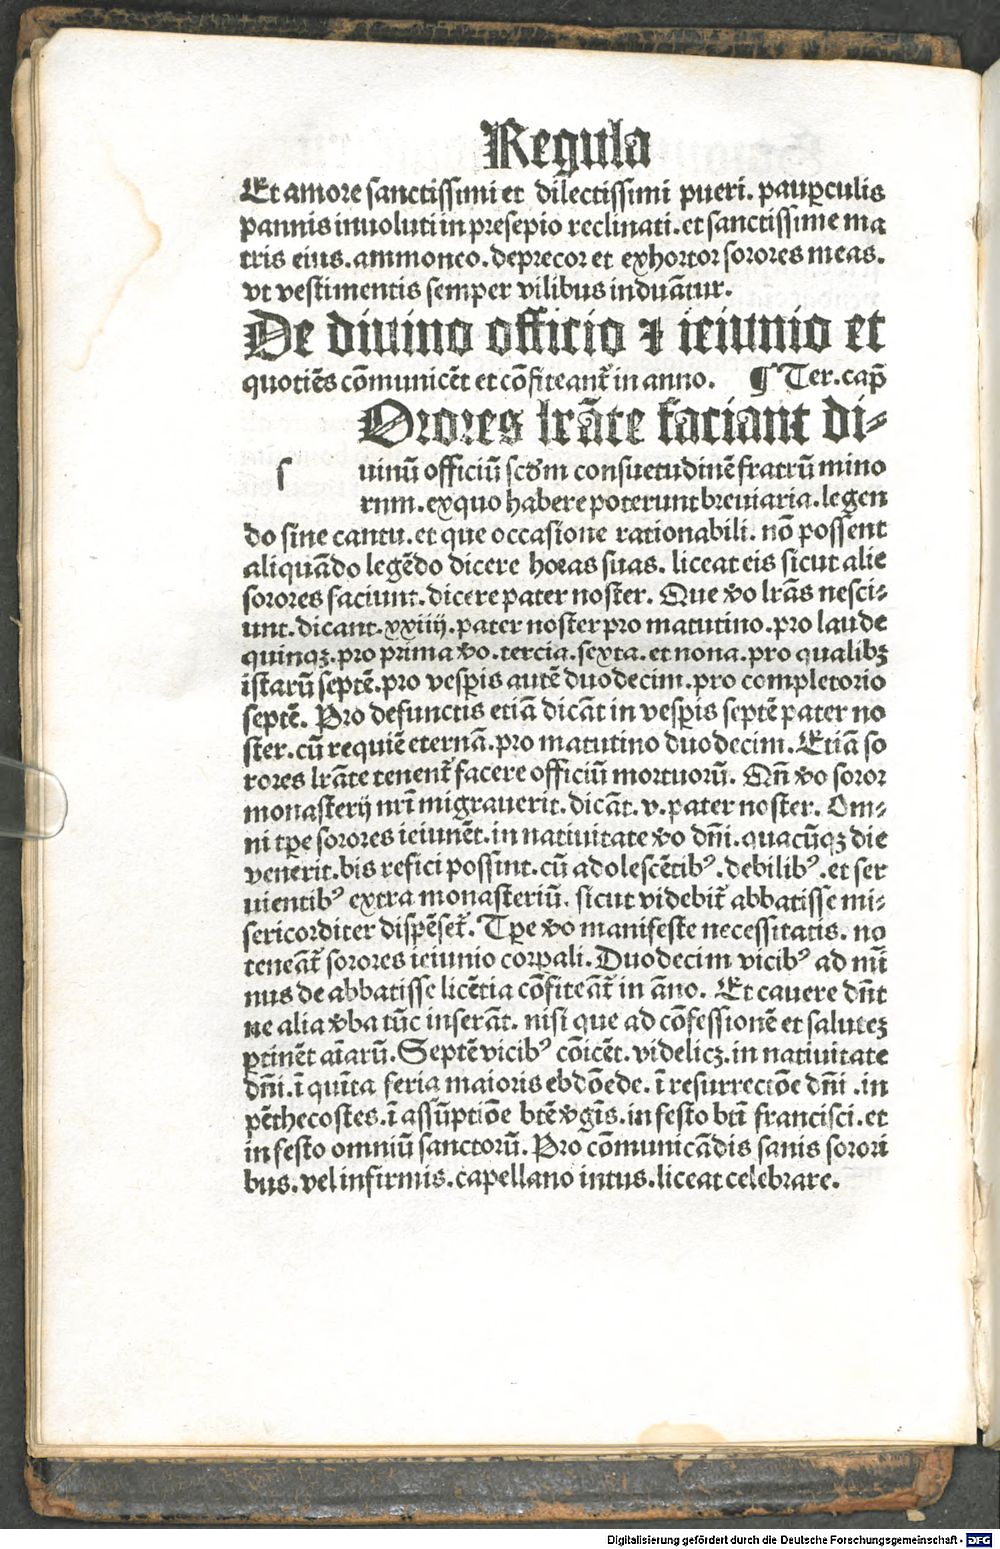 Regula
Et amore sanctissimi et dilectissimi pueri. paup̱culis
pannis inuoluti in presepio reclinati. et sanctissime ma
tris eius. ammoneo. deprecor et exhortor sorores meas.
vt vestimentis semper vilibus induãtur.
De diuino officio ⁊ ieiunio et
quotiẽs cõmunicẽt et cõfiteant᷑ in anno. ¶ Ter. cap̃
Orores lr̃ate faciant di⸗
s uinũ officiũ scd̃m consuetudinẽ fratrũ mino
rnm. ex quo habere poterunt breuiaria. legen
do sine cantu. et que occasione rationabili. nõ possent
aliquãdo legẽdo dicere horas suas. liceat eis sicut alie
sorores faciunt. dicere pater noster. Que v̾o lr̃as nesci⸗
unt. dicant. xxiiij. pater noster pro matutino. pro laude
quinqꝫ. pro prima v̾o. tercia. sexta. et nona. pro qualibꝫ
istarũ septẽ. pro vesp̱is autẽ duodecim. pro completorio
septẽ. Pro defunctis etiã dicãt in vesp̱is septẽ pater no
ster. cũ requiẽ eternã. pro matutino duodecim. Etiã so
rores lr̃ate tenent᷑ facere officiũ mortuorũ. Qñ v̾o soror
monasterij nr̃i migrauerit. dicãt. v. pater noster. Om⸗
ni tp̃e sorores ieiunẽt. in natiuitate v̾o dñi. quacũqꝫ die
venerit. bis refici possint. cũ adolescẽtibꝰ. debilibꝰ. et ser
uientibꝰ extra monasteriũ. sicut videbit᷑ abbatisse mi⸗
sericorditer dispẽset᷑. Tp̃e v̾o manifeste necessitatis. no
teneãt᷑ sorores ieiunio corp̱ali. Duodecim vicibꝰ ad mĩ
nus de abbatisse licẽtia cõfiteãt᷑ in ãno. Et cauere dñt
ne alia v̾ba tũc inserãt. nisi que ad cõfessionẽ et saluteꝫ
p̱tinẽt aĩarũ. Septẽ vicibꝰ cõicẽt. videlicꝫ. in natiuitate
dñi. ĩ quĩta feria maioris ebdõede. ĩ resurrectõe dñi . in
pẽthecostes. ĩ assũptiõe btẽ v̾gĩs. in festo bti francisci. et
in festo omniũ sanctorũ. Pro cõmunicãdis sanis sorori
bus. vel infirmis. capellano intus. liceat celebrare.
Digitalisierung gefördert durch die Deutsche Forschungsgemeinschaft - DFG